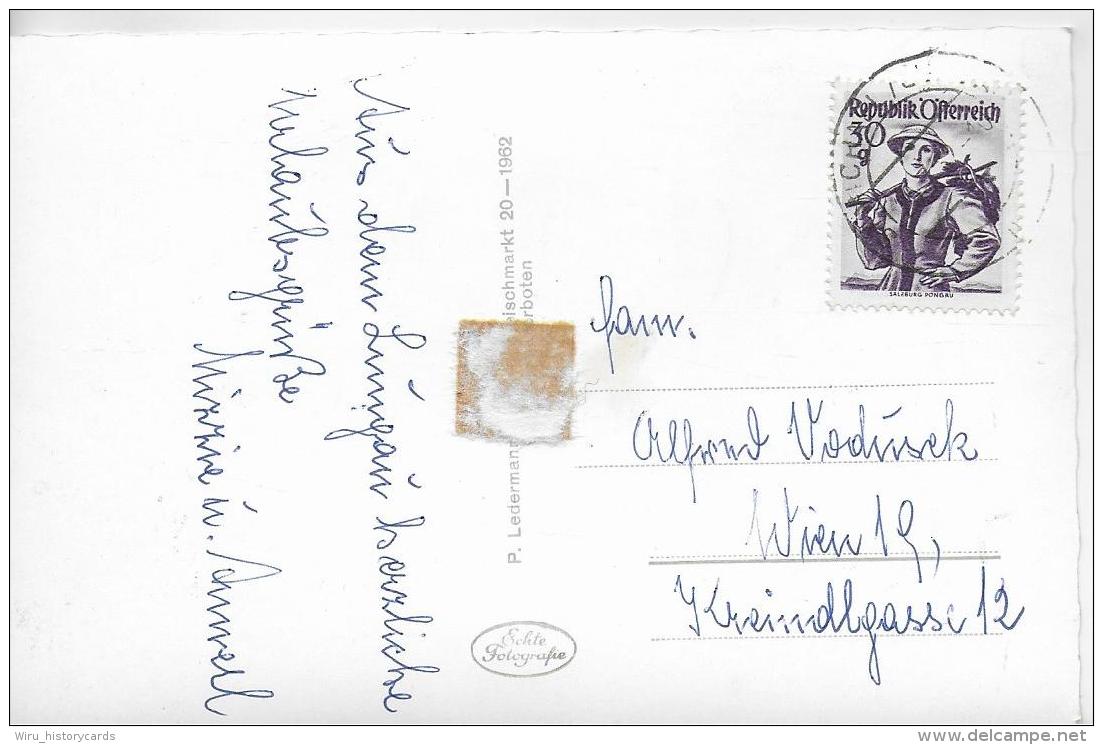 Aus dem Lungau herzliche
Urlaubsgrüße
Mizzie u. Annerl
P. Ledermann, eischmarkt 20—1962
erboten
Echte
Fotografie
Republik Österreich
30
g
SALZBURG PONGAU
Fam.
Alfred Vodusek
Wien 19,
Kreindlgasse 12
Wiru_historycards
delcampe.net